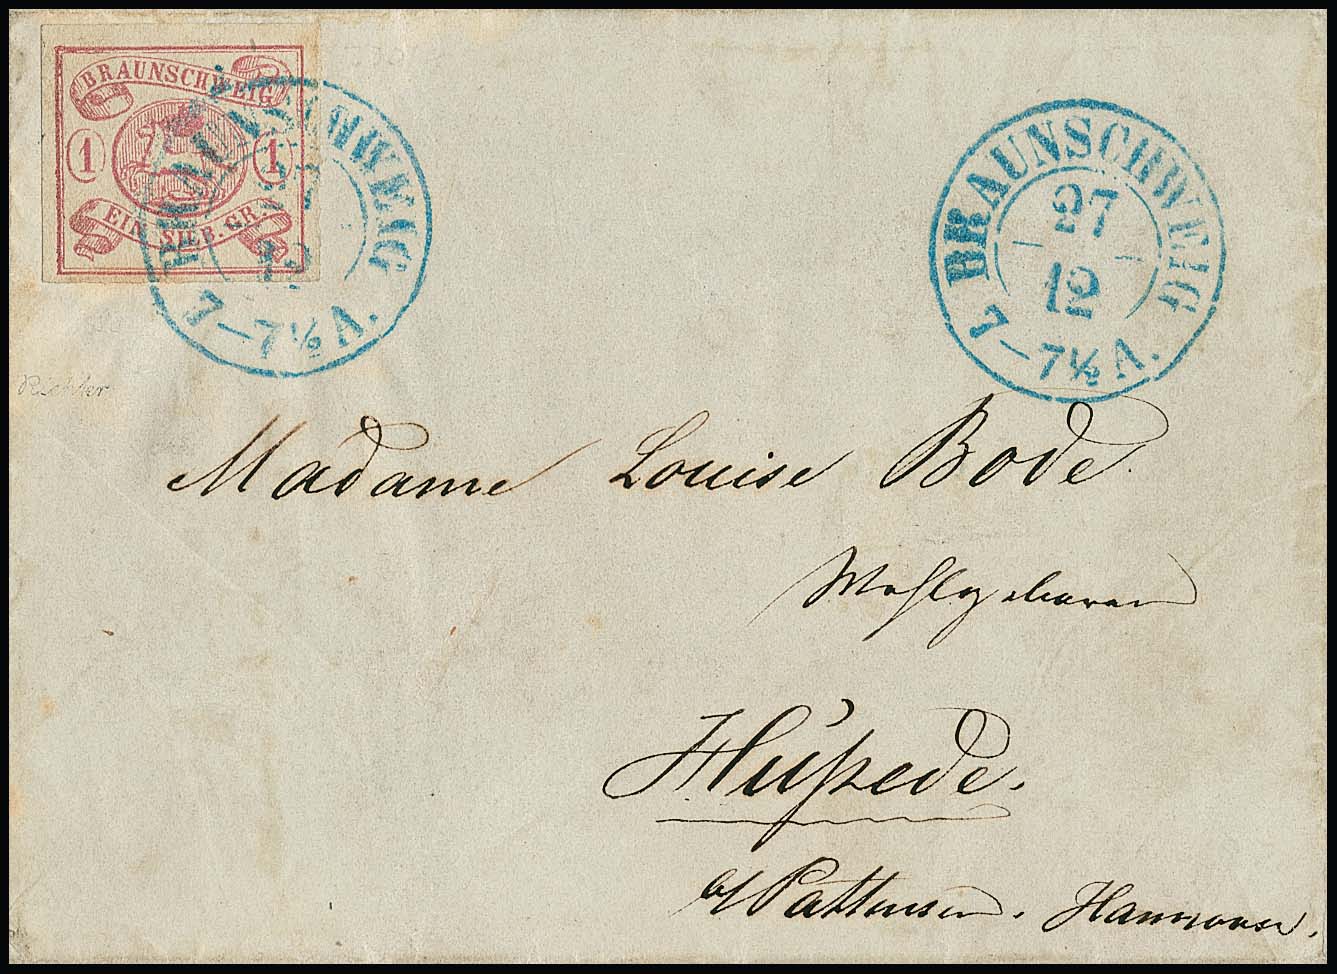 BRAUNSCHWEIG
1 1
EIN SILB. GR.
BRAUNSCHWEIG
12
7–7½ A.
BRAUNSCHWEIG
27
12
7–7½ A.
Richter
Madame Louise Bode
Wohlgeboren
Hüpede.
b/ Pattensen. Hannover.